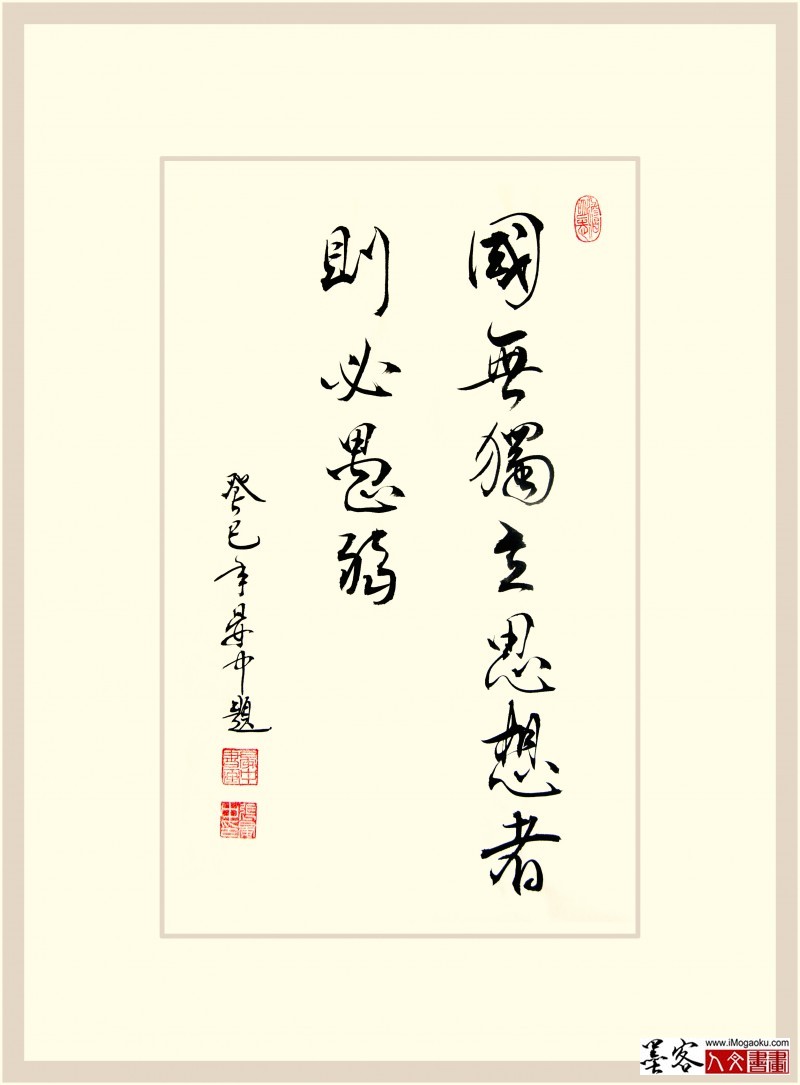 國無獨立思想者
則必愚弱
癸巳年景中題
墨客
www.iMogaoku.com
人文書畫